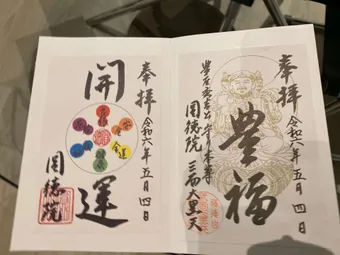 奉拝
令和六年五月四日
豊福
豊臣秀吉守り本尊
圓徳院 三面大黒天
奉拝
令和六年五月四日
開運
金運
圓徳院